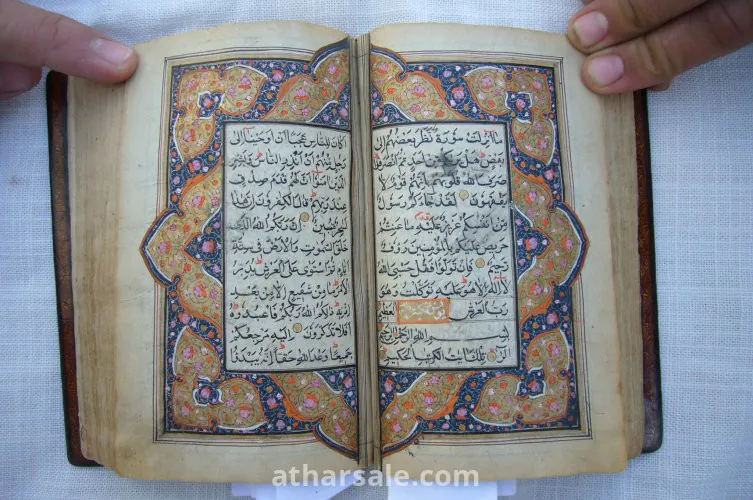 ما انزلت سورة نظر بعضهم الى
بعض هل من احد ثم
صرف الله قلوبهم بانهم قوم لا
يفقهون لقد جاءكم رسول
من انفسكم عزيز عليه ما عنتم
حريص عليكم بالمؤمنين رؤف
رحيم فان تولوا فقل حسبي الله
لا اله الا هو عليه توكلت وهو
رب العرش العظيم
بسم الله الرحمن الرحيم
الر تلك ايت الكتب الحكيم
اكان للناس عجبا ان اوحينا الى
رجل منهم ان انذر الناس وبشر
الذين امنوا ان لهم قدم صدق
عند ربهم قال الكفرون ان هذا
لسحر مبين ان ربكم الله الذي
خلق السموت والارض في ستة
ايام ثم استوى على العرش يدبر
الامر ما من شفيع الا من بعد
اذنه ذلكم الله ربكم فاعبدوه
افلا تذكرون اليه مرجعكم
جميعا وعد الله حقا انه يبدؤا
atharsale.com